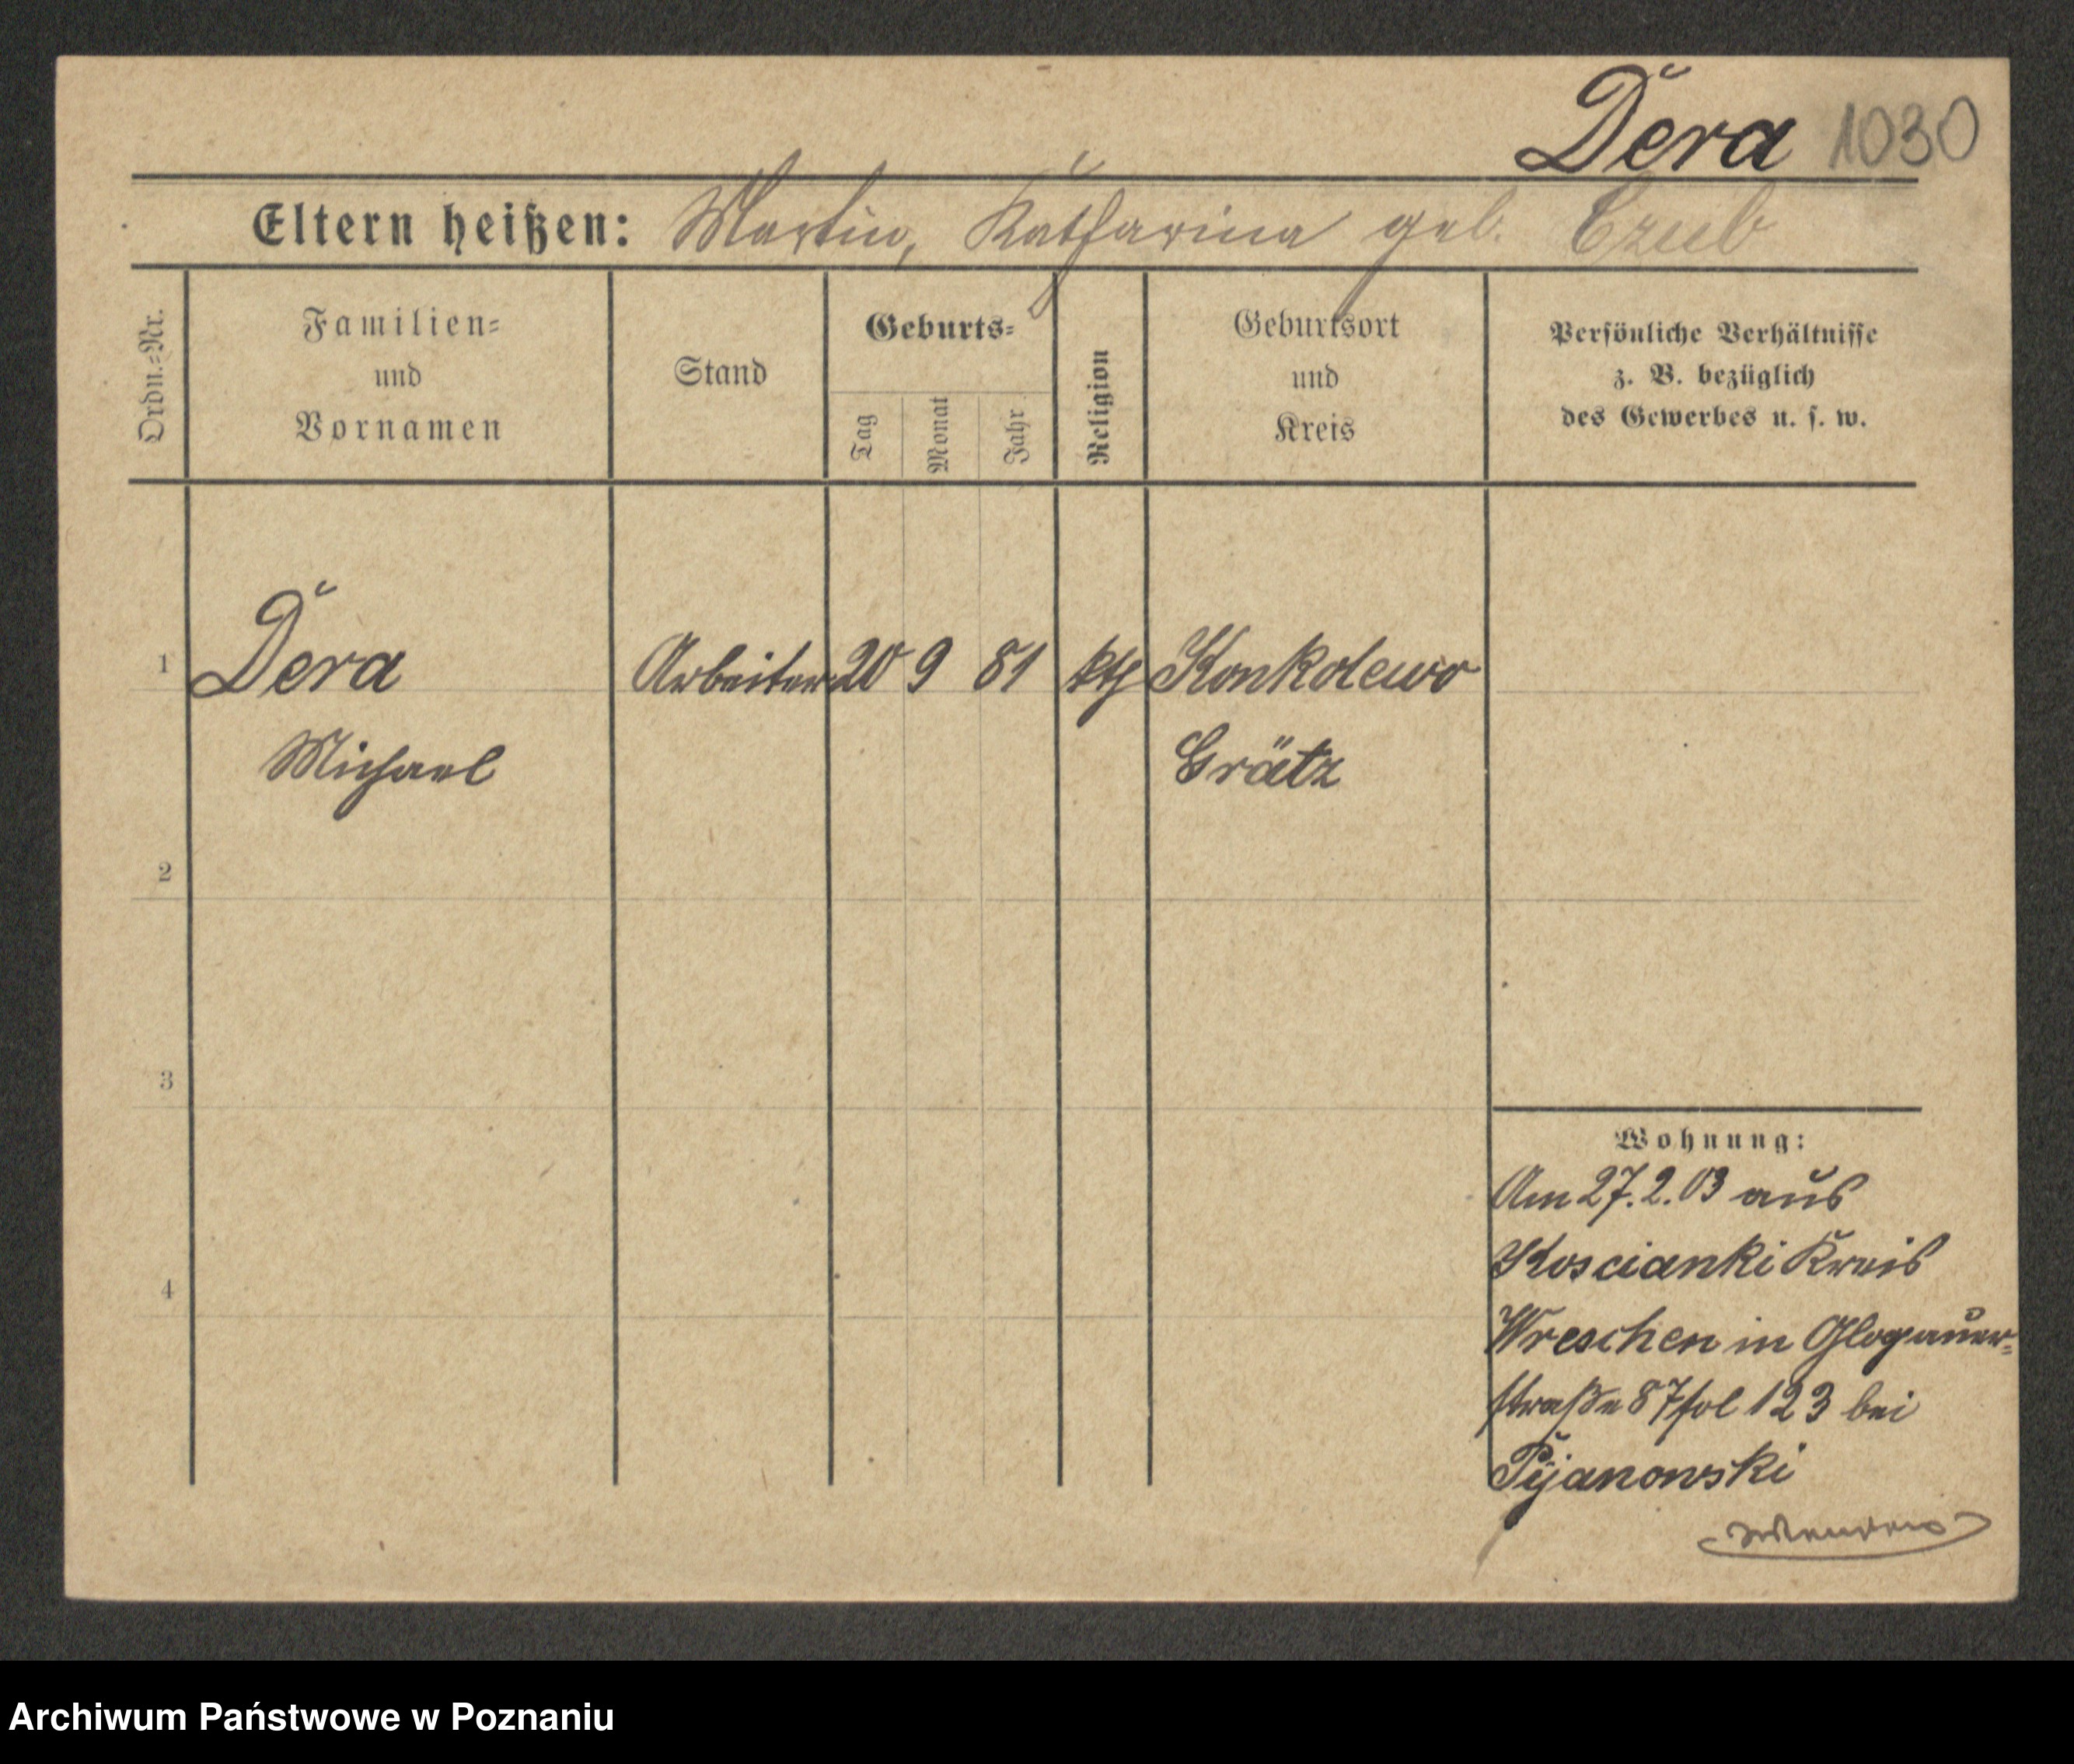 Dera 1030
Eltern heißen: Martin, Katharina geb. Czub
Ordn.=Nr.
Familien=
und
Vornamen
Stand
Geburts=
Tag
Monat
Jahr
Religion
Geburtsort
und
Kreis
Persönliche Verhältnisse
z. B. bezüglich
des Gewerbes u. s. w.
1 Dera Arbeiter 20 9 81 kth Konkolewo
Michael Grätz
2
3
Wohnung:
Am 27.2.03 aus
Koscianki Kreis
4
Wreschen in Glogauer=
straße 87 fol 123 bei
Pijanowski
Archiwum Państwowe w Poznaniu